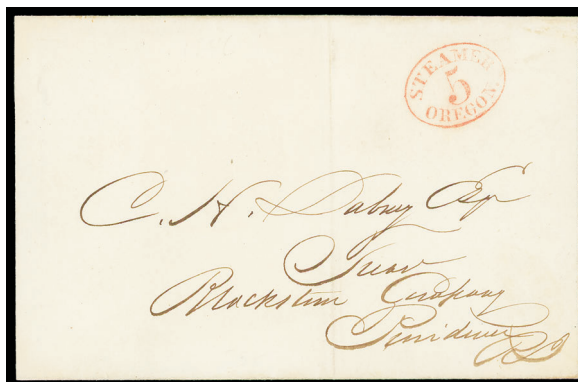 STEAMER
5
OREGON.
C. H. Dabney Esqr
Treas
Blackstone Company
Providence
R I